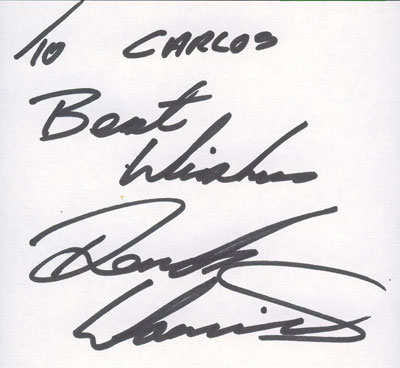 To CARLOS
Best
Wishes
Randy